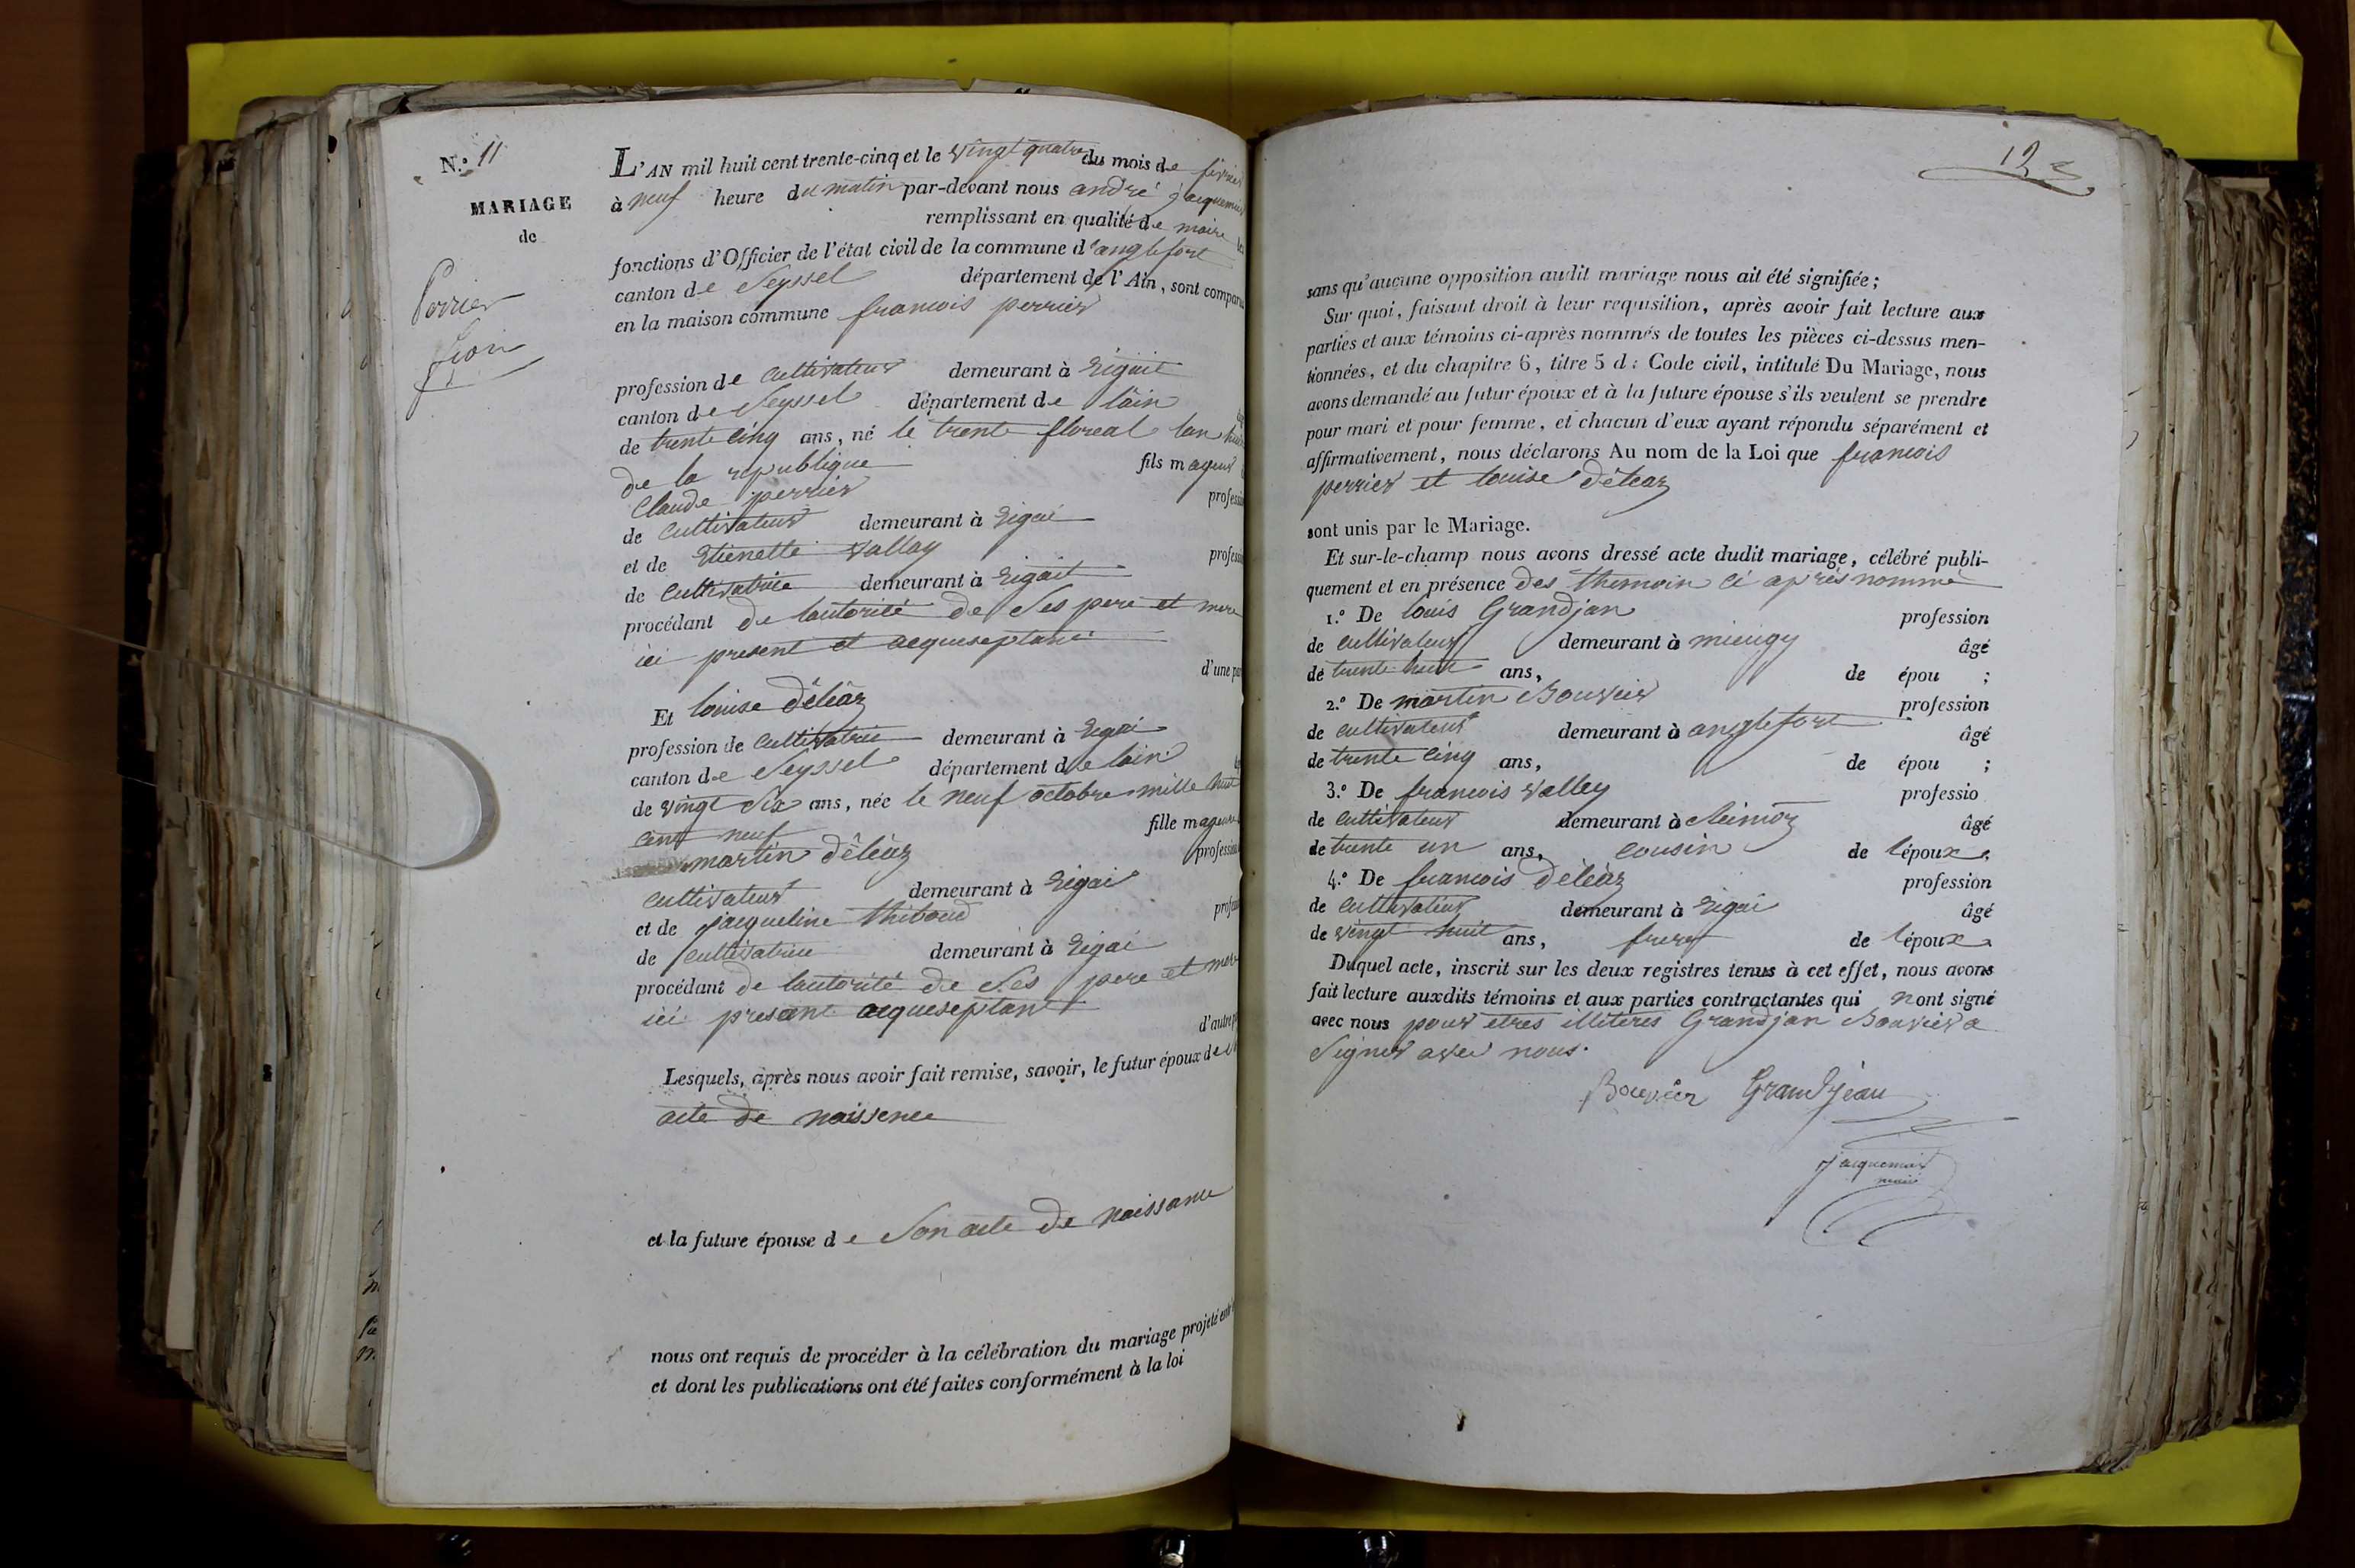 N.º 11
MARIAGE
de
L'AN mil huit cent trente-cinq et le vingt quatre du mois de fevrier
à neuf heure du matin par-devant nous andré jacquemier
remplissant en qualité de maire les
fonctions d'Officier de l'état civil de la commune d'anglefort
canton de Seyssel département de l'Ain, sont comparu
en la maison commune francois perrier
profession de cultivateur demeurant à
canton de Seyssel département de lain
de trente cinq ans, né le trente floreal lan huit
de la republique fils mageur
Claude perrier profession
de cultivateur demeurant à rigai
et de Etienette vallay profession
de cultivatrice demeurant à rigait
procédant de lautorité de ses pere et mere
ici present et acquiseptant
d'une par
Et louise déléaz
profession de cultivatrice demeurant à rigai
canton de Seyssel département de lain
de vingt six ans, née le neuf octobre mille huit
cent neuf fille mageure
martin déléaz profession
cultivateur demeurant à rigai
et de jacqueline thiboud profes
de cultivatrice demeurant à rigai
procédant de lautorité de ses pere et mere
ici present acqueseptant
d'autre p
Lesquels, après nous avoir fait remise, savoir, le futur époux de
acte de naissence
et la future épouse de Son acte de naissance
nous ont requis de procéder à la célébration du mariage projeté entr
et dont les publications ont été faites conformément à la loi
Perrier
sans qu'aucune opposition audit mariage nous ait été signifiée;
Sur quoi, faisant droit à leur requisition, après avoir fait lecture aux
parties et aux témoins ci-après nommés de toutes les pièces ci-dessus men-
tionnées, et du chapitre 6, titre 5 d: Code civil, intitulé Du Mariage, nous
avons demandé au futur époux et à la future épouse s'ils veulent se prendre
pour mari et pour femme, et chacun d'eux ayant répondu séparément et
affirmativement, nous déclarons Au nom de la Loi que francois
perrier et louise déléaz
sont unis par le Mariage.
Et sur-le-champ nous avons dressé acte dudit mariage, célébré publi-
quement et en présence des themoin ci aprés nommé
1.º De louis Grandjan profession
de cultivateur demeurant à mieugy âgé
de trente huit ans, de épou ;
2.º De martin Bouvier profession
de cultivateur demeurant à anglefort âgé
de trente cinq ans, de épou ;
3.º De francois valley professio
de cultivateur demeurant à âgé
de trente un ans, cousin de lépoux
4.º De francois déléaz profession
de cultivateur demeurant à rigai âgé
de vingt huit ans, frere de lépoux
Duquel acte, inscrit sur les deux registres tenus à cet effet, nous avons
fait lecture auxdits témoins et aux parties contractantes qui nont signé
avec nous pour etres illiteres Grandjan Bouvier a
signer avec nous.
Bouvier Grandjean
jacquemier
maire